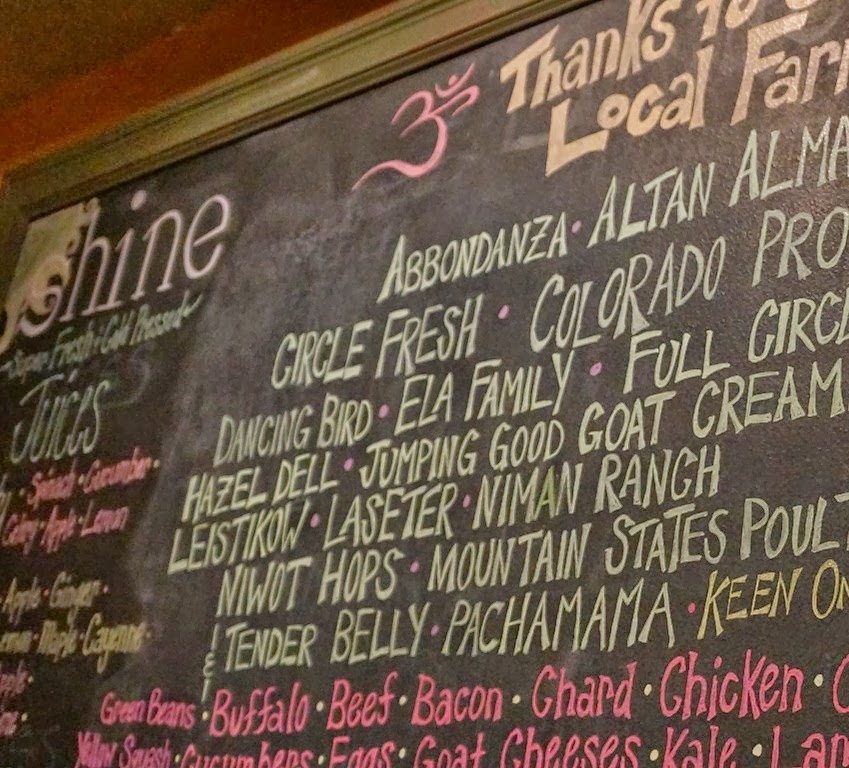 Thanks to
Local Far
ॐ
Shine
Super Fresh · Cold Pressed
Juices
Spinach · Cucumber ·
Celery · Apple · Lemon
Apple · Ginger ·
Maple · Cayenne ·
ABBONDANZA · ALTAN ALMA
CIRCLE FRESH · COLORADO PRO
DANCING BIRD · ELA FAMILY · FULL CIRCL
HAZEL DELL · JUMPING GOOD GOAT CREAM
LEISTIKOW · LASETER · NIMAN RANCH
NIWOT HOPS · MOUNTAIN STATES POULT
TENDER BELLY · PACHAMAMA · KEEN ON
Green Beans · Buffalo · Beef · Bacon · Chard · Chicken · C
Yellow Squash · Cucumbers · Eggs · Goat Cheeses · Kale · Lam